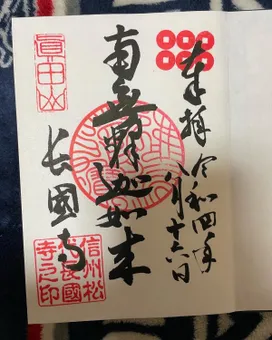 奉拝
令和四年
八月十六日
南無釈迦如来
真田山
長國寺
信州松
代長國
寺之印